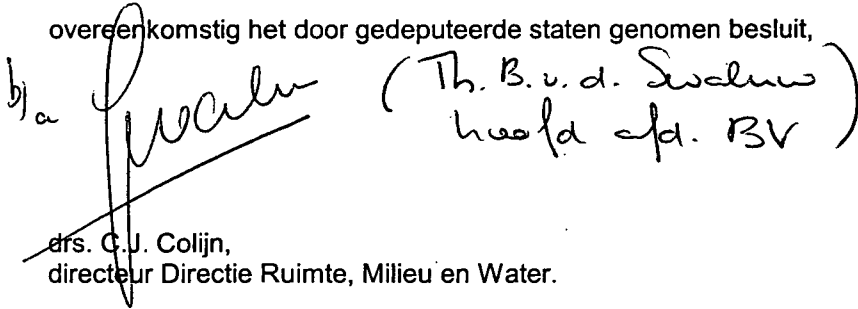 overeenkomstig het door gedeputeerde staten genomen besluit,
b/a (Th. B. v. d. Swaluw
hoofd afd. BV)
drs. C.J. Colijn,
directeur Directie Ruimte, Milieu en Water.